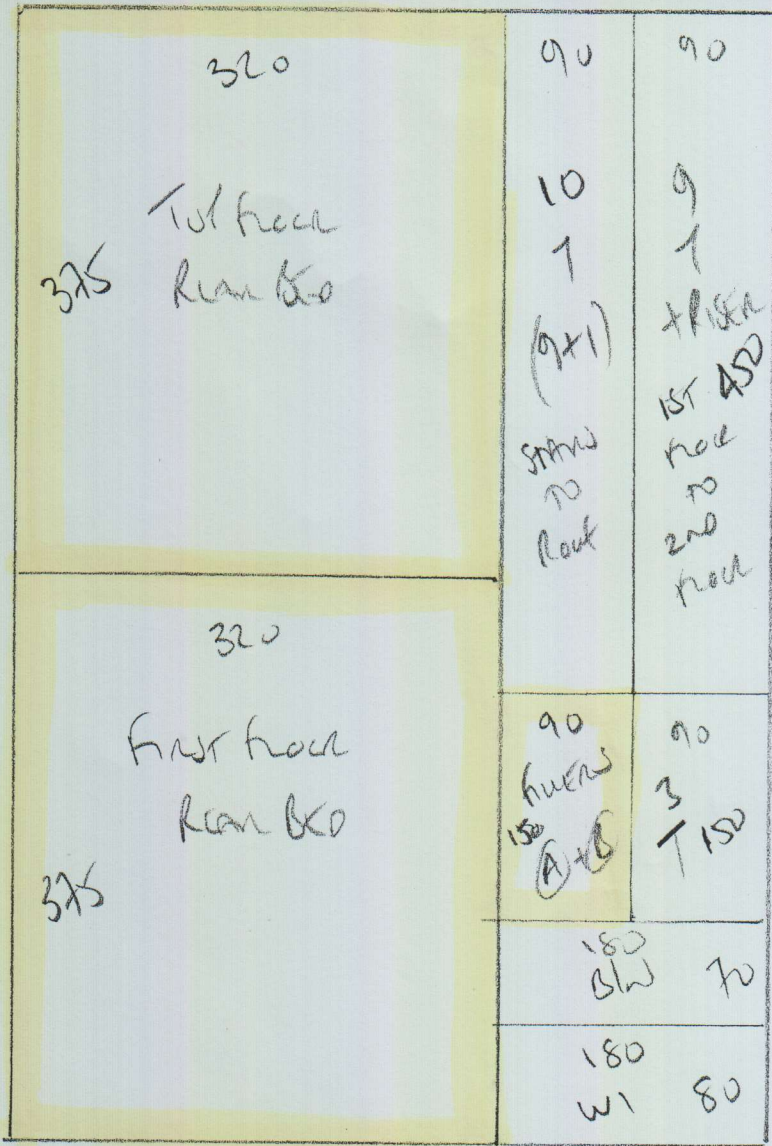 320
375
Floor
Rear Bed
90
10
T
(9+1)
Stairs
to
90
9
T
+ Riser
1st 450
Floor
to
2nd
Floor
320
First Floor
Rear Bed
375
90
Fillers
150
A + B
90
3
T 150
180
B/W 70
180
W1 80